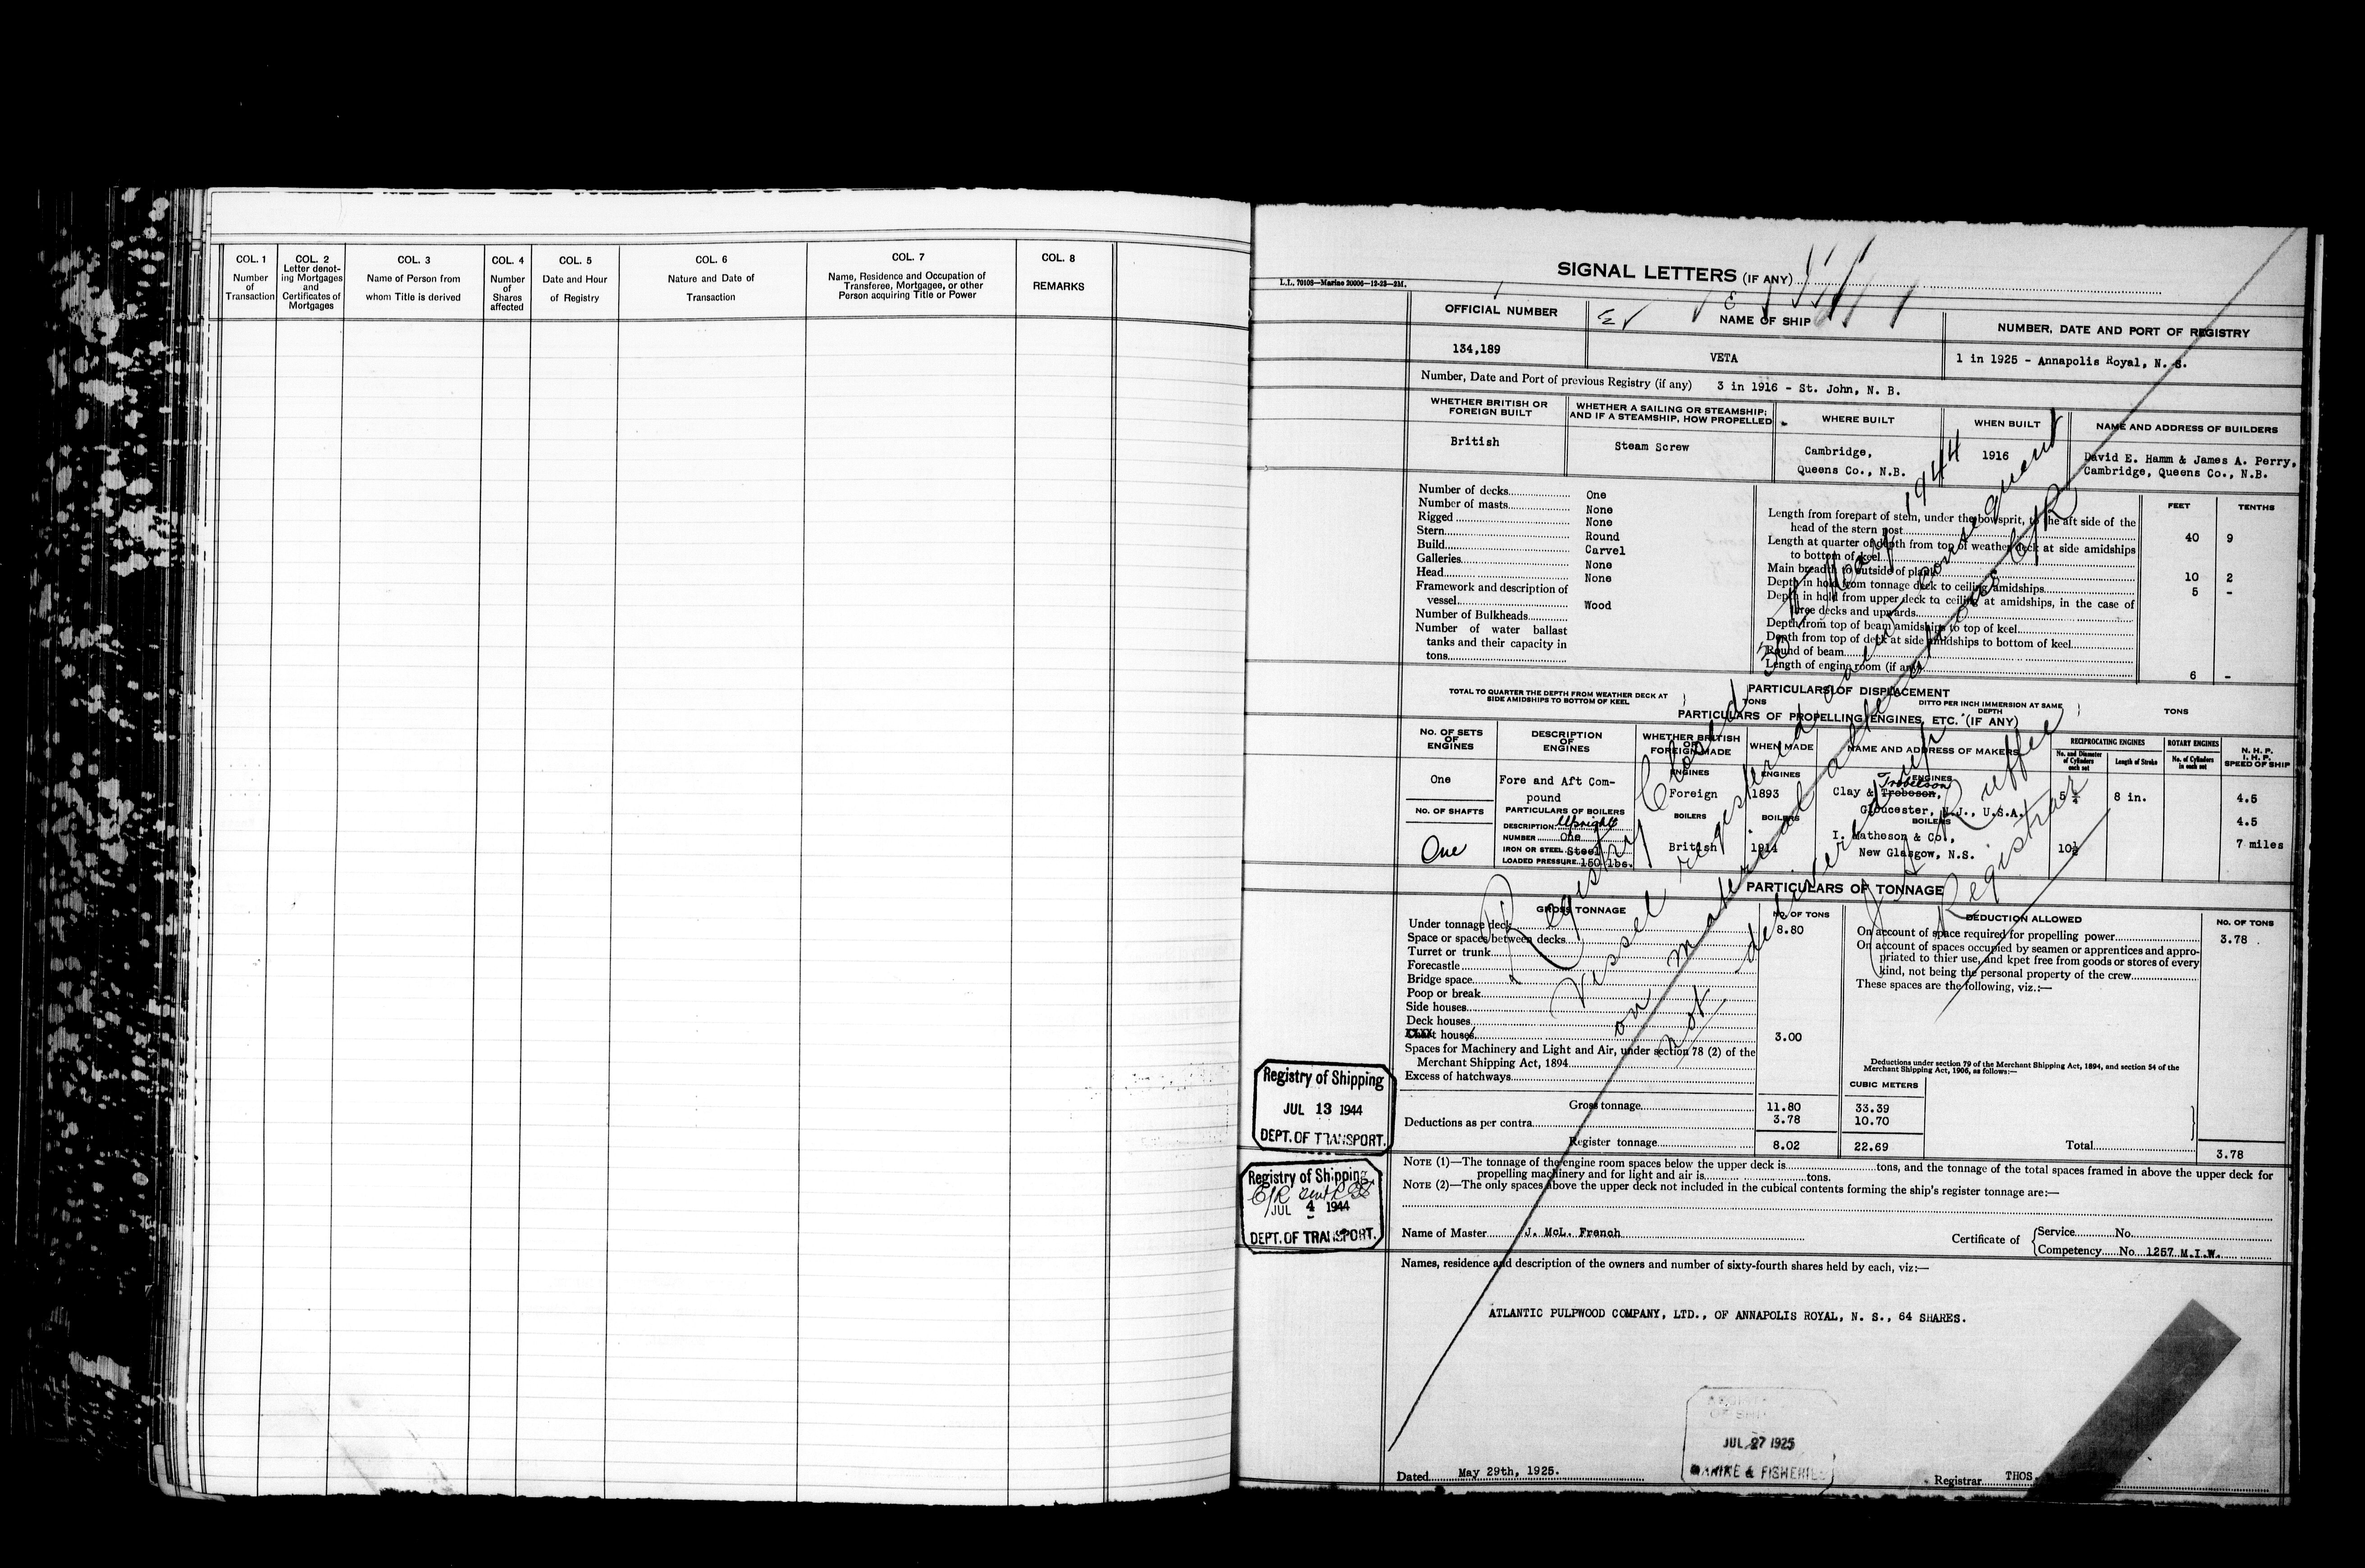 COL. 1
Number
of
Transaction
COL. 2
Letter denot-
ing Mortgages
and
Certificates of
Mortgages
COL. 3
Name of Person from
whom Title is derived
COL. 4
Number
of
Shares
affected
COL. 5
Date and Hour
of Registry
COL. 6
Nature and Date of
Transaction
COL. 7
Name, Residence and Occupation of
Transferee, Mortgagee, or other
Person acquiring Title or Power
COL. 8
REMARKS
SIGNAL LETTERS (IF ANY)
L.L. 70105—Marine 20006—12-23—2M.
OFFICIAL NUMBER
NAME OF SHIP
NUMBER, DATE AND PORT OF REGISTRY
134,189
VETA
1 in 1925 - Annapolis Royal, N. S.
Number, Date and Port of previous Registry (if any) 3 in 1916 - St. John, N. B.
WHETHER BRITISH OR
FOREIGN BUILT
WHETHER A SAILING OR STEAMSHIP;
AND IF A STEAMSHIP, HOW PROPELLED
WHERE BUILT
WHEN BUILT
NAME AND ADDRESS OF BUILDERS
British
Steam Screw
Cambridge,
Queens Co., N.B.
1916
David E. Hamm & James A. Perry,
Cambridge, Queens Co., N.B.
Number of decks One
Number of masts None
Rigged None
Stern Round
Build Carvel
Galleries None
Head None
Framework and description of
vessel Wood
Number of Bulkheads
Number of water ballast
tanks and their capacity in
tons
FEET
TENTHS
Length from forepart of stem, under the bowsprit, to the aft side of the
head of the stern post 40 9
Length at quarter of depth from top of weather deck at side amidships
to bottom of keel
Main breadth to outside of plank 10 2
Depth in hold from tonnage deck to ceiling amidships 5 -
Depth in hold from upper deck to ceiling at amidships, in the case of
three decks and upwards
Depth from top of beam amidships to top of keel
Depth from top of deck at side amidships to bottom of keel
Round of beam
Length of engine room (if any) 6 -
PARTICULARS OF DISPLACEMENT
TOTAL TO QUARTER THE DEPTH FROM WEATHER DECK AT
SIDE AMIDSHIPS TO BOTTOM OF KEEL
TONS
DITTO PER INCH IMMERSION AT SAME
DEPTH
TONS
PARTICULARS OF PROPELLING ENGINES, ETC. (IF ANY)
NO. OF SETS
OF
ENGINES
DESCRIPTION
OF
ENGINES
WHETHER BRITISH
OR
FOREIGN MADE
WHEN MADE
NAME AND ADDRESS OF MAKERS
RECIPROCATING ENGINES
No. and Diameter
of Cylinders
each set
Length of Stroke
ROTARY ENGINES
No. of Cylinders
in each set
N. H. P.
I. H. P.
SPEED OF SHIP
One
Fore and Aft Com-
pound
ENGINES
Foreign
ENGINES
1893
ENGINES
Trobelson
Clay & Troboson,
Gloucester, N.J., U.S.A.
8 in.
4.5
4.5
7 miles
NO. OF SHAFTS
One
PARTICULARS OF BOILERS
DESCRIPTION Upright
NUMBER One
IRON OR STEEL Steel
LOADED PRESSURE 150 lbs.
BOILERS
British
BOILERS
1914
BOILERS
I. Matheson & Co.,
New Glasgow, N.S.
10½
PARTICULARS OF TONNAGE
GROSS TONNAGE
NO. OF TONS
Under tonnage deck 8.80
Space or spaces between decks
Turret or trunk
Forecastle
Bridge space
Poop or break
Side houses
Deck houses
Chart houses 3.00
Spaces for Machinery and Light and Air, under section 78 (2) of the
Merchant Shipping Act, 1894
Excess of hatchways
Gross tonnage 11.80 33.39
Deductions as per contra 3.78 10.70
Register tonnage 8.02 22.69
CUBIC METERS
DEDUCTION ALLOWED
NO. OF TONS
On account of space required for propelling power 3.78
On account of spaces occupied by seamen or apprentices and appro-
priated to thier use, and kpet free from goods or stores of every
kind, not being the personal property of the crew
These spaces are the following, viz.:—
Deductions under section 79 of the Merchant Shipping Act, 1894, and section 54 of the
Merchant Shipping Act, 1906, as follows:—
Total 3.78
NOTE (1)—The tonnage of the engine room spaces below the upper deck is tons, and the tonnage of the total spaces framed in above the upper deck for
propelling machinery and for light and air is tons.
NOTE (2)—The only spaces above the upper deck not included in the cubical contents forming the ship's register tonnage are:—
Name of Master J. McL. French
Certificate of
Service No.
Competency No. 1257 M.I.W.
Names, residence and description of the owners and number of sixty-fourth shares held by each, viz:—
ATLANTIC PULPWOOD COMPANY, LTD., OF ANNAPOLIS ROYAL, N. S., 64 SHARES.
Dated May 29th, 1925.
Registrar THOS.
Registry Closed 30th May 1944
Vessel registered anew consequent
on material alterations C of R
not delivered up
Ruffee
Registrar
Registry of Shipping
JUL 13 1944
DEPT. OF TRANSPORT.
Registry of Shipping
C/R
JUL 4 1944
DEPT. OF TRANSPORT.
JUL 27 1925
MARINE & FISHERIES